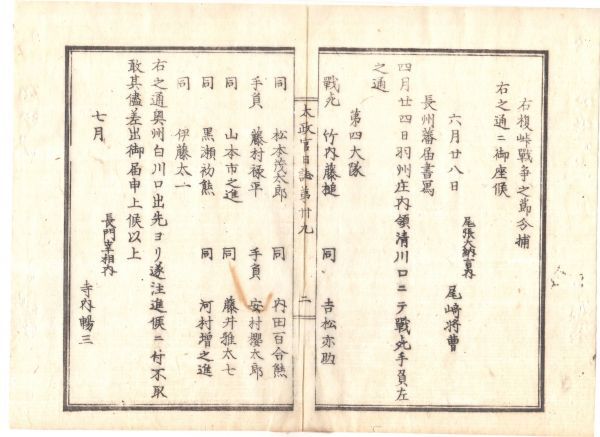 右榎峠戰争之節分捕
右之通ニ御座候
六月廿八日
尾張大納言内
尾﨑将曹
長州藩届書写
四月廿四日羽州庄内領清川口ニテ戰死手負左
之通
第四大隊
戰死 竹内藤槌 同 吉松亦助
太政官日誌第卅九 二
同 松本茂太郎 同 内田百合熊
手負 藤村禄平 手負 安村櫻太郎
同 山本市之進 同 藤井雅太七
同 黒瀬初熊 同 河村増之進
同 伊藤太一
右之通奥州白川口出先ヨリ遂注進候ニ付不取
敢其儘差出御届申上候以上
七月
長門宰相内
寺内暢三